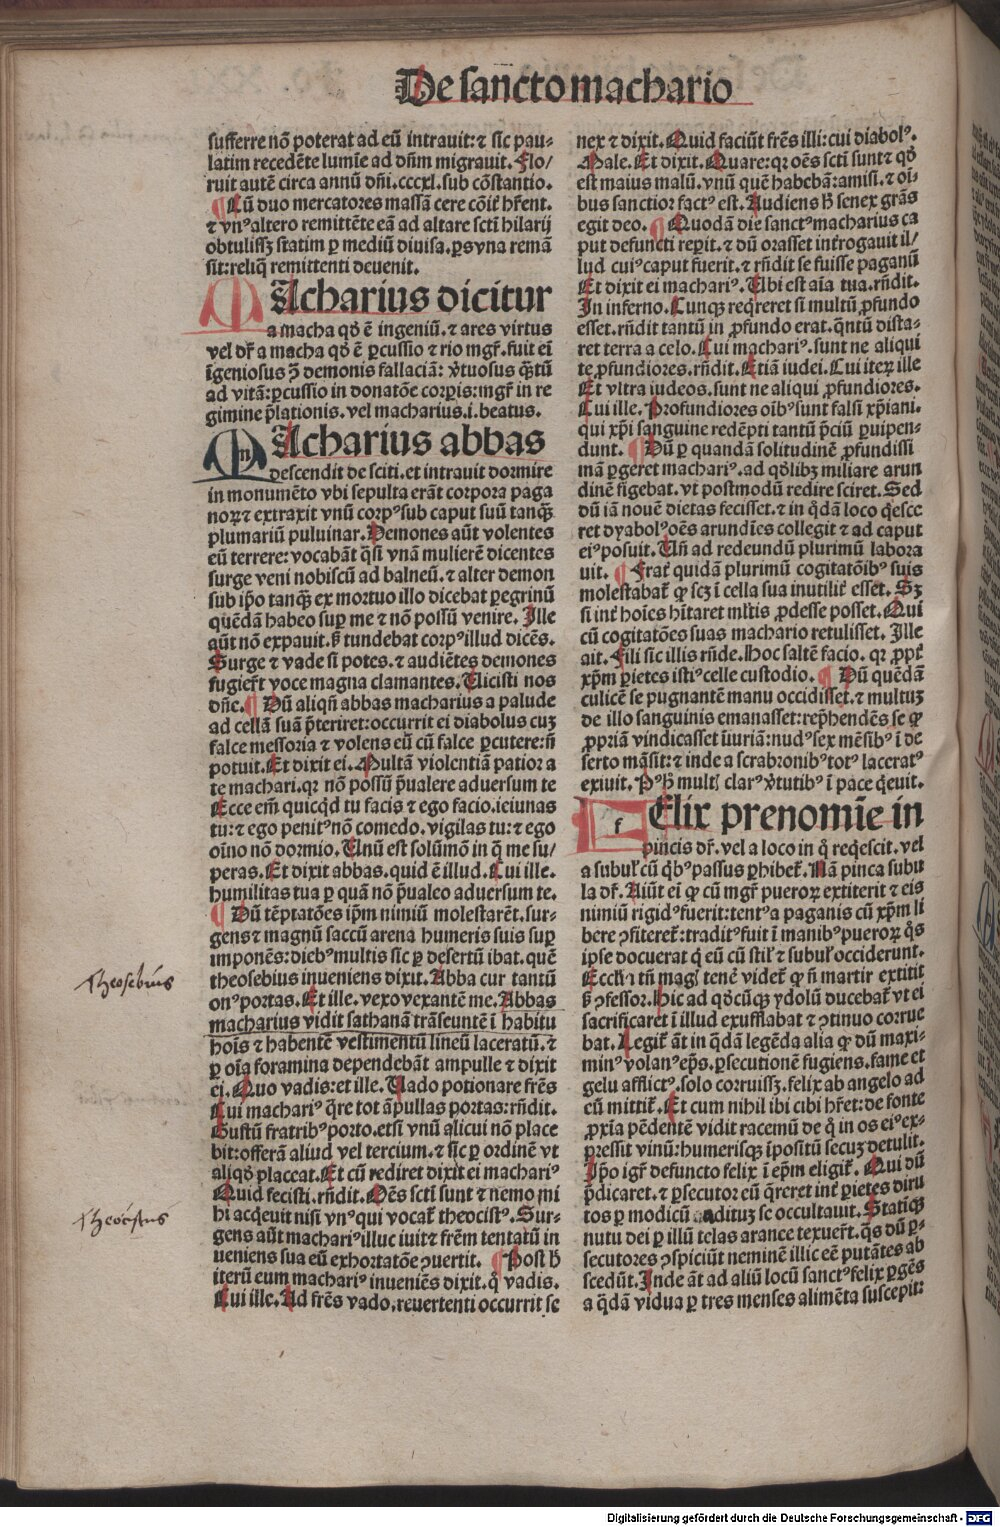 De sancto machario
sufferre nõ poterat ad eũ intrauit: ⁊ sic pau-
latim recedẽte lumĩe ad dñm migrauit. Flo/
ruit autẽ circa annũ dñi. cccxl. sub cõstantio.
¶ Cũ duo mercatores massã cere cõit̃ hr̃ent.
⁊ vnꝰ altero remittẽte eã ad altare scti hilarij
obtulissꝫ statim ꝑ mediũ diuisa. ꝑs vna remã
sit: reliq̃ remittenti deuenit.
MAcharius dicitur
a macha qd̕ ẽ ingeniũ. ⁊ ares virtus
vel dr̃ a macha qd̕ ẽ ꝑcussio ⁊ rio mgr̃. fuit eĩ
ĩgeniosus ↄ̃ demonis fallaciã: v̕tuosus q̃tũ
ad vitã: ꝑcussio in donatõe corꝑis: mgr̃ in re
gimine p̃lationis. vel macharius .i. beatus.
MAcharius abbas
descendit de sciti. et intrauit dormire
in monumẽto vbi sepulta erãt corpora paga
noꝝ ⁊ extraxit vnũ corpꝰ sub caput suũ tanq̃ꝫ
plumariũ puluinar. Demones aũt volentes
eũ terrere: vocabãt q̃si vnã mulierẽ dicentes
surge veni nobiscũ ad balneũ. ⁊ alter demon
sub ip̃o tanq̃ꝫ ex mortuo illo dicebat ꝑegrinũ
quẽdã habeo suꝑ me ⁊ nõ possũ venire. Ille
aũt non expauit. sꝫ tundebat corpꝰ illud dicẽs.
Surge ⁊ vade si potes. ⁊ audiẽtes demones
fugier̃t voce magna clamantes. Vicisti nos
dñe. ¶ Dũ aliqñ abbas macharius a palude
ad cellã suã p̃teriret: occurrit ei diabolus cuꝫ
falce messoria ⁊ volens eũ cũ falce ꝑcutere: ñ
potuit. Et dixit ei. Multã violentiã patior a
te machari. qꝛ nõ possũ p̃ualere aduersum te
Ecce em̃ quicq̃d tu facis ⁊ ego facio. ieiunas
tu: ⁊ ego penitꝰ nõ comedo. vigilas tu: ⁊ ego
oĩno nõ dormio. Vnũ est solũmõ in q̃ me su/
peras. Et dixit abbas. quid ẽ illud. Cui ille.
humilitas tua ꝑ quã nõ p̃ualeo aduersum te.
¶ Dũ tẽptatões ip̃m nimiũ molestarẽt. sur-
gens ⁊ magnũ saccũ arena humeris suis suꝑ
imponẽs: diebꝰ multis sic ꝑ desertũ ibat. quẽ
theosebius inueniens dixit. Abba cur tantũ
onꝰ portas. Et ille. vexo vexantẽ me. Abbas
macharius vidit sathanã trãseuntẽ ĩ habitu
hoĩs ⁊ habentẽ vestimentũ lineũ laceratũ. ⁊
ꝑ oĩa foramina dependebãt ampulle ⁊ dixit
ei. Quo vadis: et ille. Vado potionare frẽs
Cui machariꝰ q̃re tot ãpullas portas: rñdit.
Gustũ fratribꝰ porto. etsi vnũ alicui nõ place
bit: offerã aliud vel tercium. ⁊ sic ꝑ ordinẽ vt
aliqd̕ placeat. Et cũ rediret dixit ei machariꝰ
Quid fecisti. rñdit. Oẽs scti sunt ⁊ nemo mi
hi acq̃euit nisi vnꝰ qui vocat̃ theocistꝰ. Sur-
gens aũt machariꝰ illuc iuit ⁊ frẽm tentatũ in
ueniens sua eũ exhortatõe ↄuertit. ¶ Post h̕
iterũ eum machariꝰ inueniẽs dixit. q̃ vadis.
Cui ille. Ad frẽs vado. reuertenti occurrit se
nex ⁊ dixit. Quid faciũt frẽs illi: cui diabolꝰ.
Male. Et dixit. Quare: qꝛ oẽs scti sunt ⁊ qd̕
est maius malũ. vnũ quẽ habebã: amisi. ⁊ oĩ-
bus sanctior factꝰ est. Audiens h̕ senex grãs
egit deo. ¶ Quodã die sanctꝰ macharius ca
put defuncti reꝑit. ⁊ dũ orasset int̕rogauit il/
lud cuiꝰ caput fuerit. ⁊ rñdit se fuisse paganũ
Et dixit ei machariꝰ. Vbi est aĩa tua. rñdit.
In inferno. Cunqꝫ req̃reret si multũ ꝓfundo
esset. rñdit tantũ in ꝓfundo erat. q̃ntũ dista-
ret terra a celo. Cui machariꝰ. sunt ne aliqui
te ꝓfundiores. rñdit. Etiã iudei. Cui iteꝝ ille
Et vltra iudeos. sunt ne aliqui ꝓfundiores.
Cui ille. Profundiores oĩbꝰ sunt falsi xp̃iani.
qui xp̃i sanguine redẽpti tantũ p̃ciũ ꝑuipen-
dunt. ¶ Dũ ꝑ quandã solitudinẽ ꝓfundissi
mã ꝑgeret machariꝰ. ad q̃dlibꝫ miliare arun
dinẽ figebat. vt postmodũ redire sciret. Sed
dũ iã nouẽ dietas fecisset. ⁊ in q̃dã loco q̃esce
ret dyabolꝰ oẽs arundĩes collegit ⁊ ad caput
eiꝰ posuit. Vñ ad redeundũ plurimũ labora
uit. ¶ Frat̕ quidã plurimũ cogitatõibꝰ suis
molestabat̃ ꝙ scꝫ ĩ cella sua inutilit̕ esset. Sꝫ
si int̕ hoĩes hĩtaret ml̃tis ꝓdesse posset. Qui
cũ cogitatões suas machario retulisset. Ille
ait. Fili sic illis rñde. Hoc saltẽ facio. qꝛ ꝓpt̕
xp̃m ꝑietes istiꝰ celle custodio. ¶ Dũ quẽdã
culicẽ se pugnantẽ manu occidisset. ⁊ multuꝫ
de illo sanguinis emanasset: rep̃hendẽs se ꝙ
ꝓpriã vindicasset ĩiuriã: nudꝰ sex mẽsibꝰ ĩ de
serto mãsit: ⁊ inde a scrabronibꝰ totꝰ laceratꝰ
exiuit. Pꝰ h̕ multꝭ clarꝰ v̕tutibꝰ ĩ pace q̃euit.
FElix prenomĩe in
pincis dr̃. vel a loco in q̃ req̃escit. vel
a subul̕ cũ q̃bꝰ passus ꝑhibet̃. Nã pinca subu
la dr̃. Aiũt ei ꝙ cũ mgr̃ pueroꝝ extiterit ⁊ eis
nimiũ rigidꝰ fuerit: tentꝰ a paganis cũ xp̃m li
bere ↄfiteret̃: traditꝰ fuit ĩ manibꝰ pueroꝝ q̃s
ipse docuerat q̃ eũ cũ stil̕ ⁊ subul̕ occiderunt.
Eccl̃ia tñ magꝭ tenẽ videt̃ ꝙ ñ martir extitit
sꝫ ↄfessor. Hic ad q̃dcũqꝫ ydolũ ducebat̃ vt ei
sacrificaret ĩ illud exufflabat ⁊ ↄtinuo corrue
bat. Legit̃ ãt in q̃dã legẽda alia ꝙ dũ maxi-
minꝰ volanꝰ ep̃s. ꝑsecutionẽ fugiens. fame et
gelu afflictꝰ. solo corruissꝫ. felix ab angelo ad
eũ mittit̃. Et cum nihil ibi cibi hr̃et: de fonte
ꝓxĩa pẽdentẽ vidit racemũ de q̃ in os eiꝰ ex-
pressit vinũ: humerisqꝫ ĩpositũ secuꝫ detulit.
Ip̃o igr̃ defuncto felix ĩ ep̃m eligit̃. Qui dũ
p̃dicaret. ⁊ ꝑsecutor eũ q̃reret int̕ ꝑietes diru
tos ꝑ modicũ adituꝫ se occultauit. Statiqꝫ
nutu dei ꝑ illũ telas arance texuer̃t. q̃s dũ ꝑ-
secutores ↄspiciũt neminẽ illic eẽ putãtes ab
scedũt. Inde ãt ad aliũ locũ sanctꝰ felix ꝑgẽs
a q̃dã vidua ꝑ tres menses alimẽta suscepit:
Theosebius
Theocistus
Digitalisierung gefördert durch die Deutsche Forschungsgemeinschaft - DFG